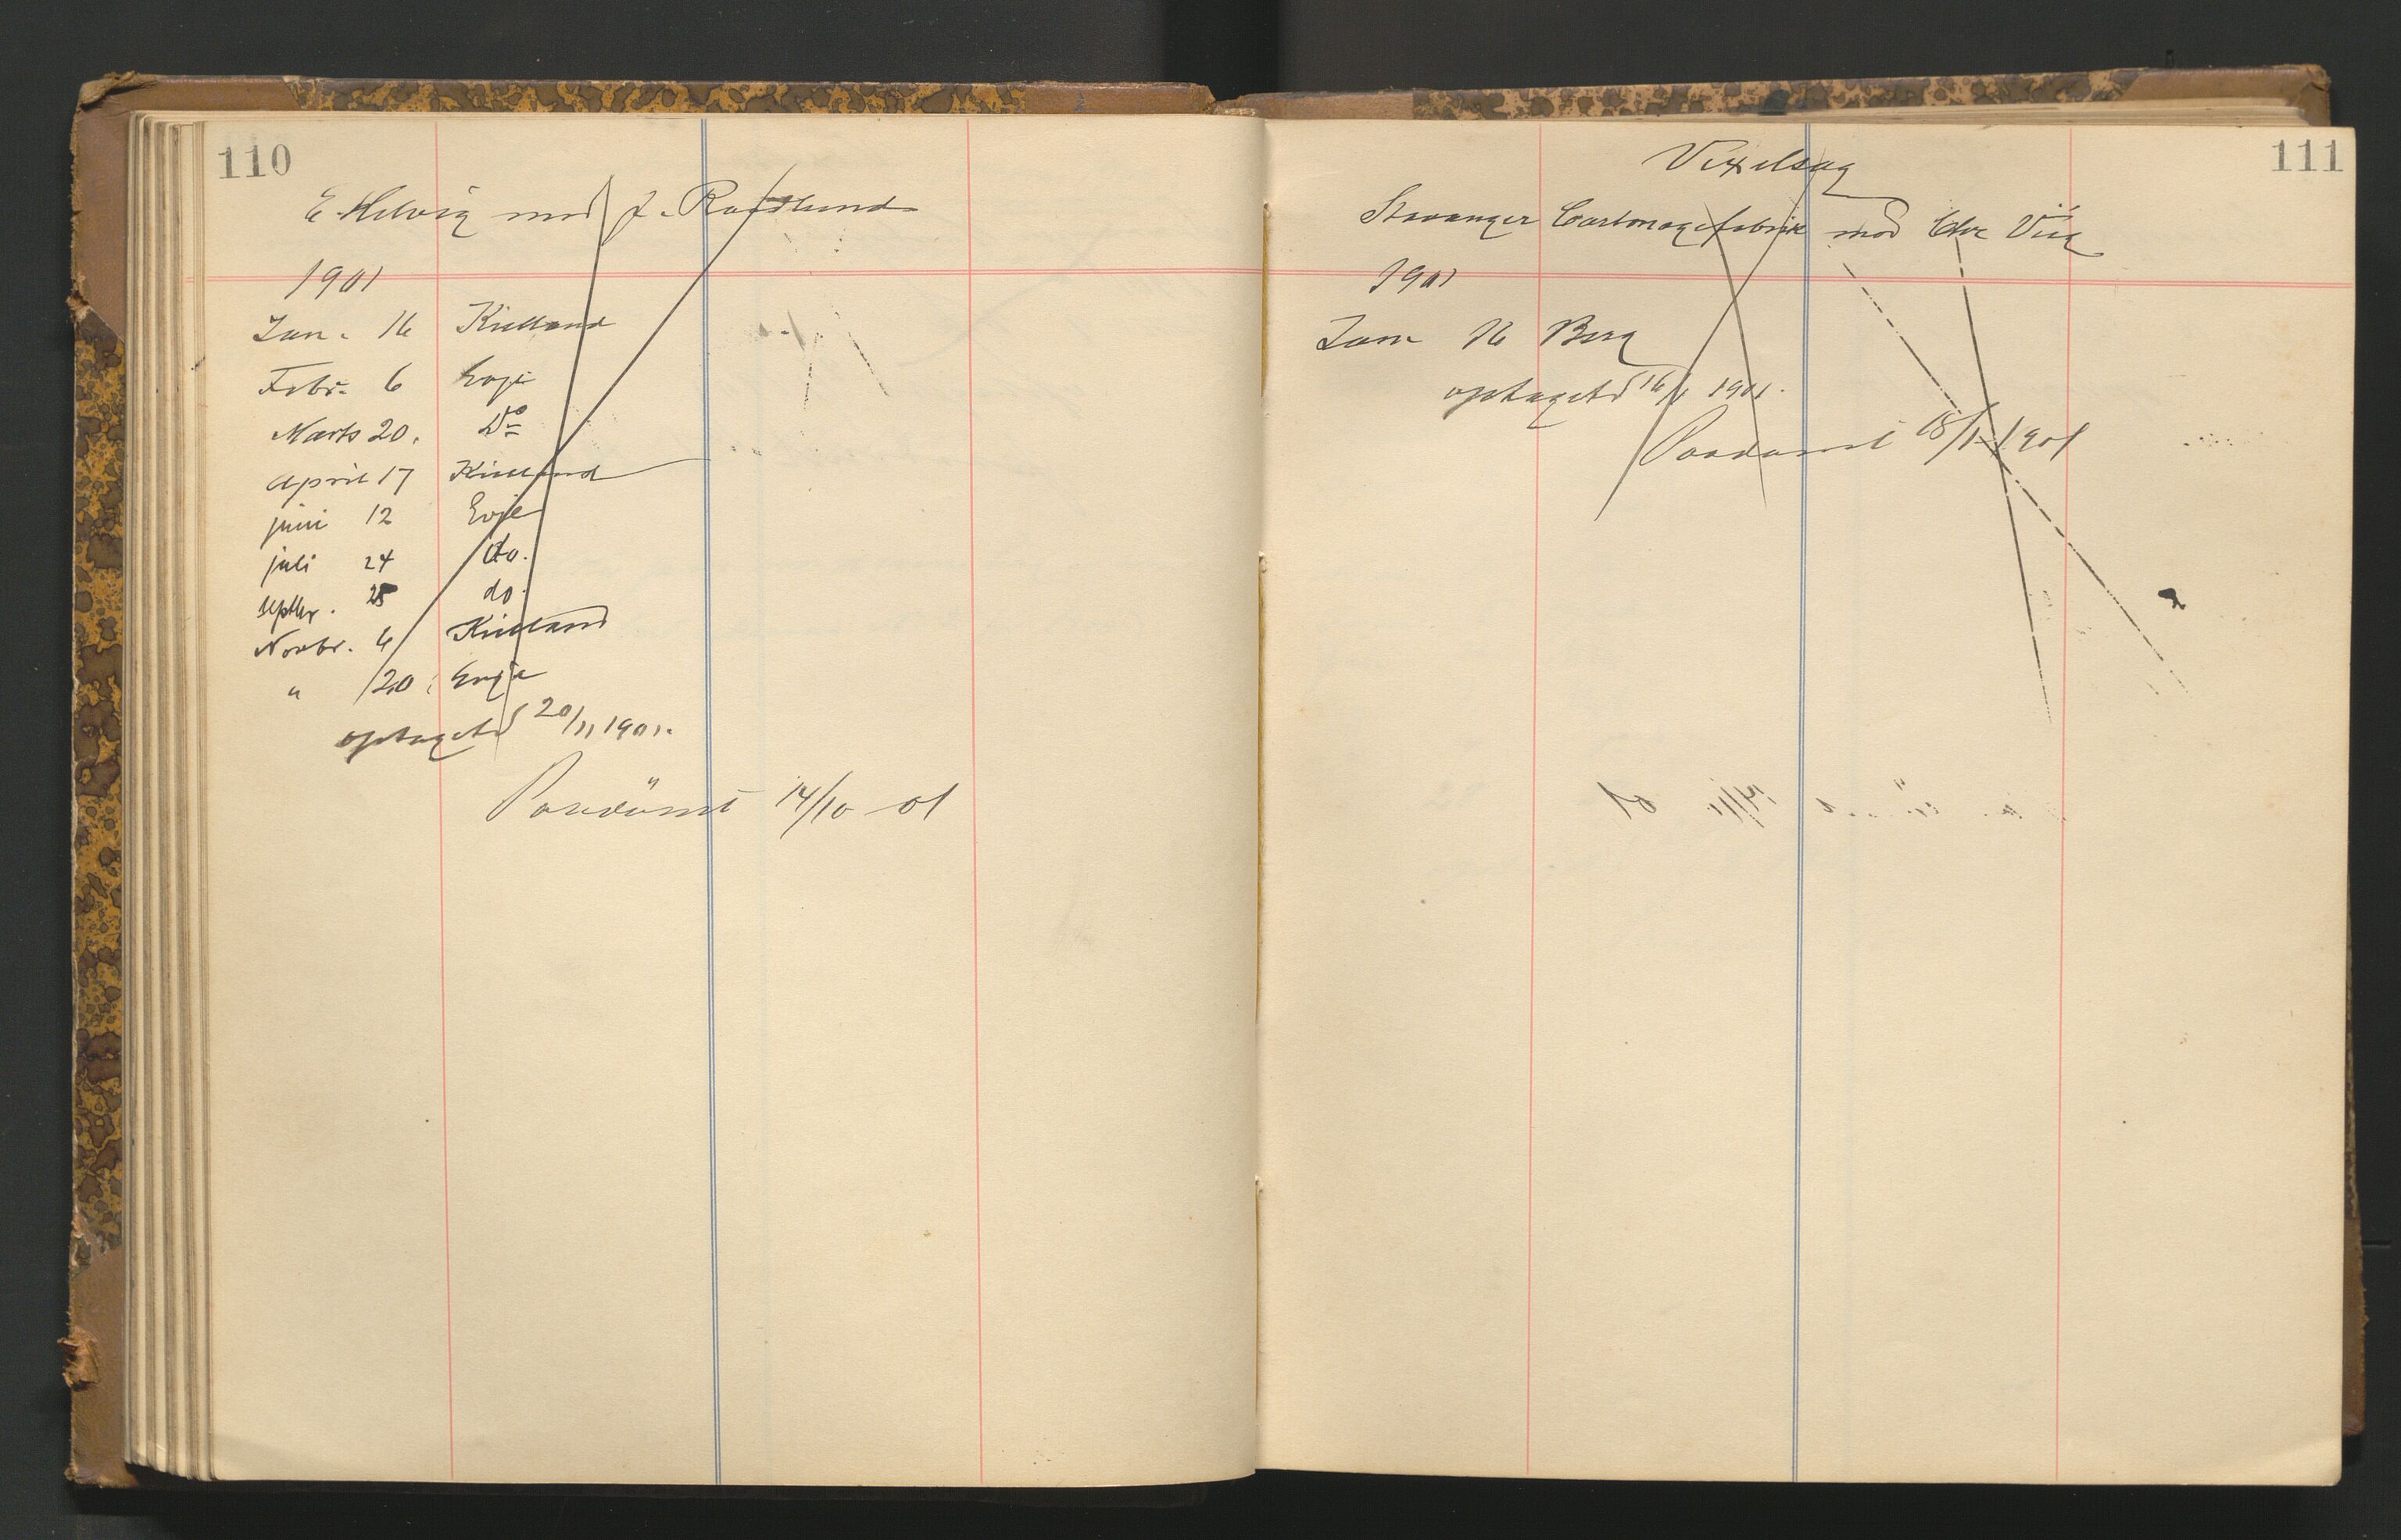 110
E. Helvig mod J. Rasdlund
1901
Jan. 16 Kielland
Febr. 6 Evje
Marts 20. Do
April 17 Kielland
juni 12 Evje
juli 24 do.
septbr. 25 do.
Novbr. 6 Kielland
" 20 Evje
optaget 20/11 1901.
Paadömt 14/10 01
111
Vexelsag
Stavanger Cartonagefabrik mod Chr Viig
1901
Jan 16 Berg
optaget 16/1 1901.
Paadömt 18/1 1901